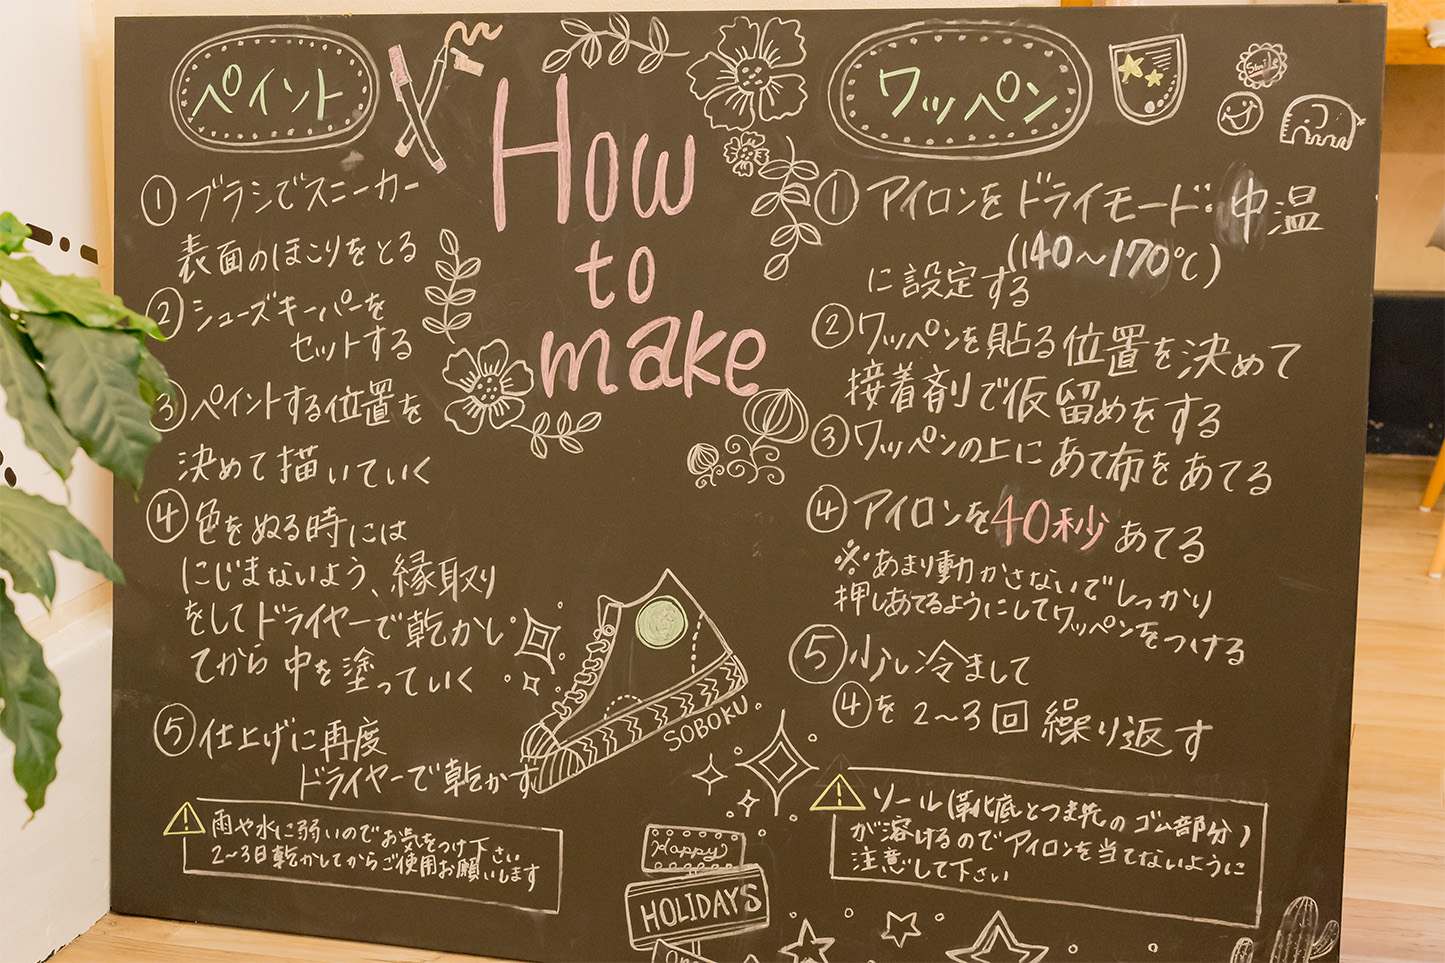 ペイント
How
to
make
① ブラシでスニーカー
表面のほこりをとる
② シューズキーパーを
セットする
③ ペイントする位置を
決めて描いていく
④ 色をぬる時には
にじまないよう、縁取り
をしてドライヤーで乾かし
てから中を塗っていく
⑤ 仕上げに再度
ドライヤーで乾かす
⚠ 雨や水に弱いのでお気をつけ下さい
2〜3日乾かしてからご使用お願いします
ワッペン
Smile
① アイロンをドライモード:中温
(140〜170℃)
に設定する
② ワッペンを貼る位置を決めて
接着剤で仮留めをする
③ ワッペンの上にあて布をあてる
④ アイロンを40秒あてる
※あまり動かさないでしっかり
押しあてるようにしてワッペンをつける
⑤ 少し冷まして
④を2〜3回繰り返す
⚠ ソール(靴底とつま先のゴム部分)
が溶けるのでアイロンを当てないように
注意して下さい
SOBOKU.
Happy
HOLIDAYS